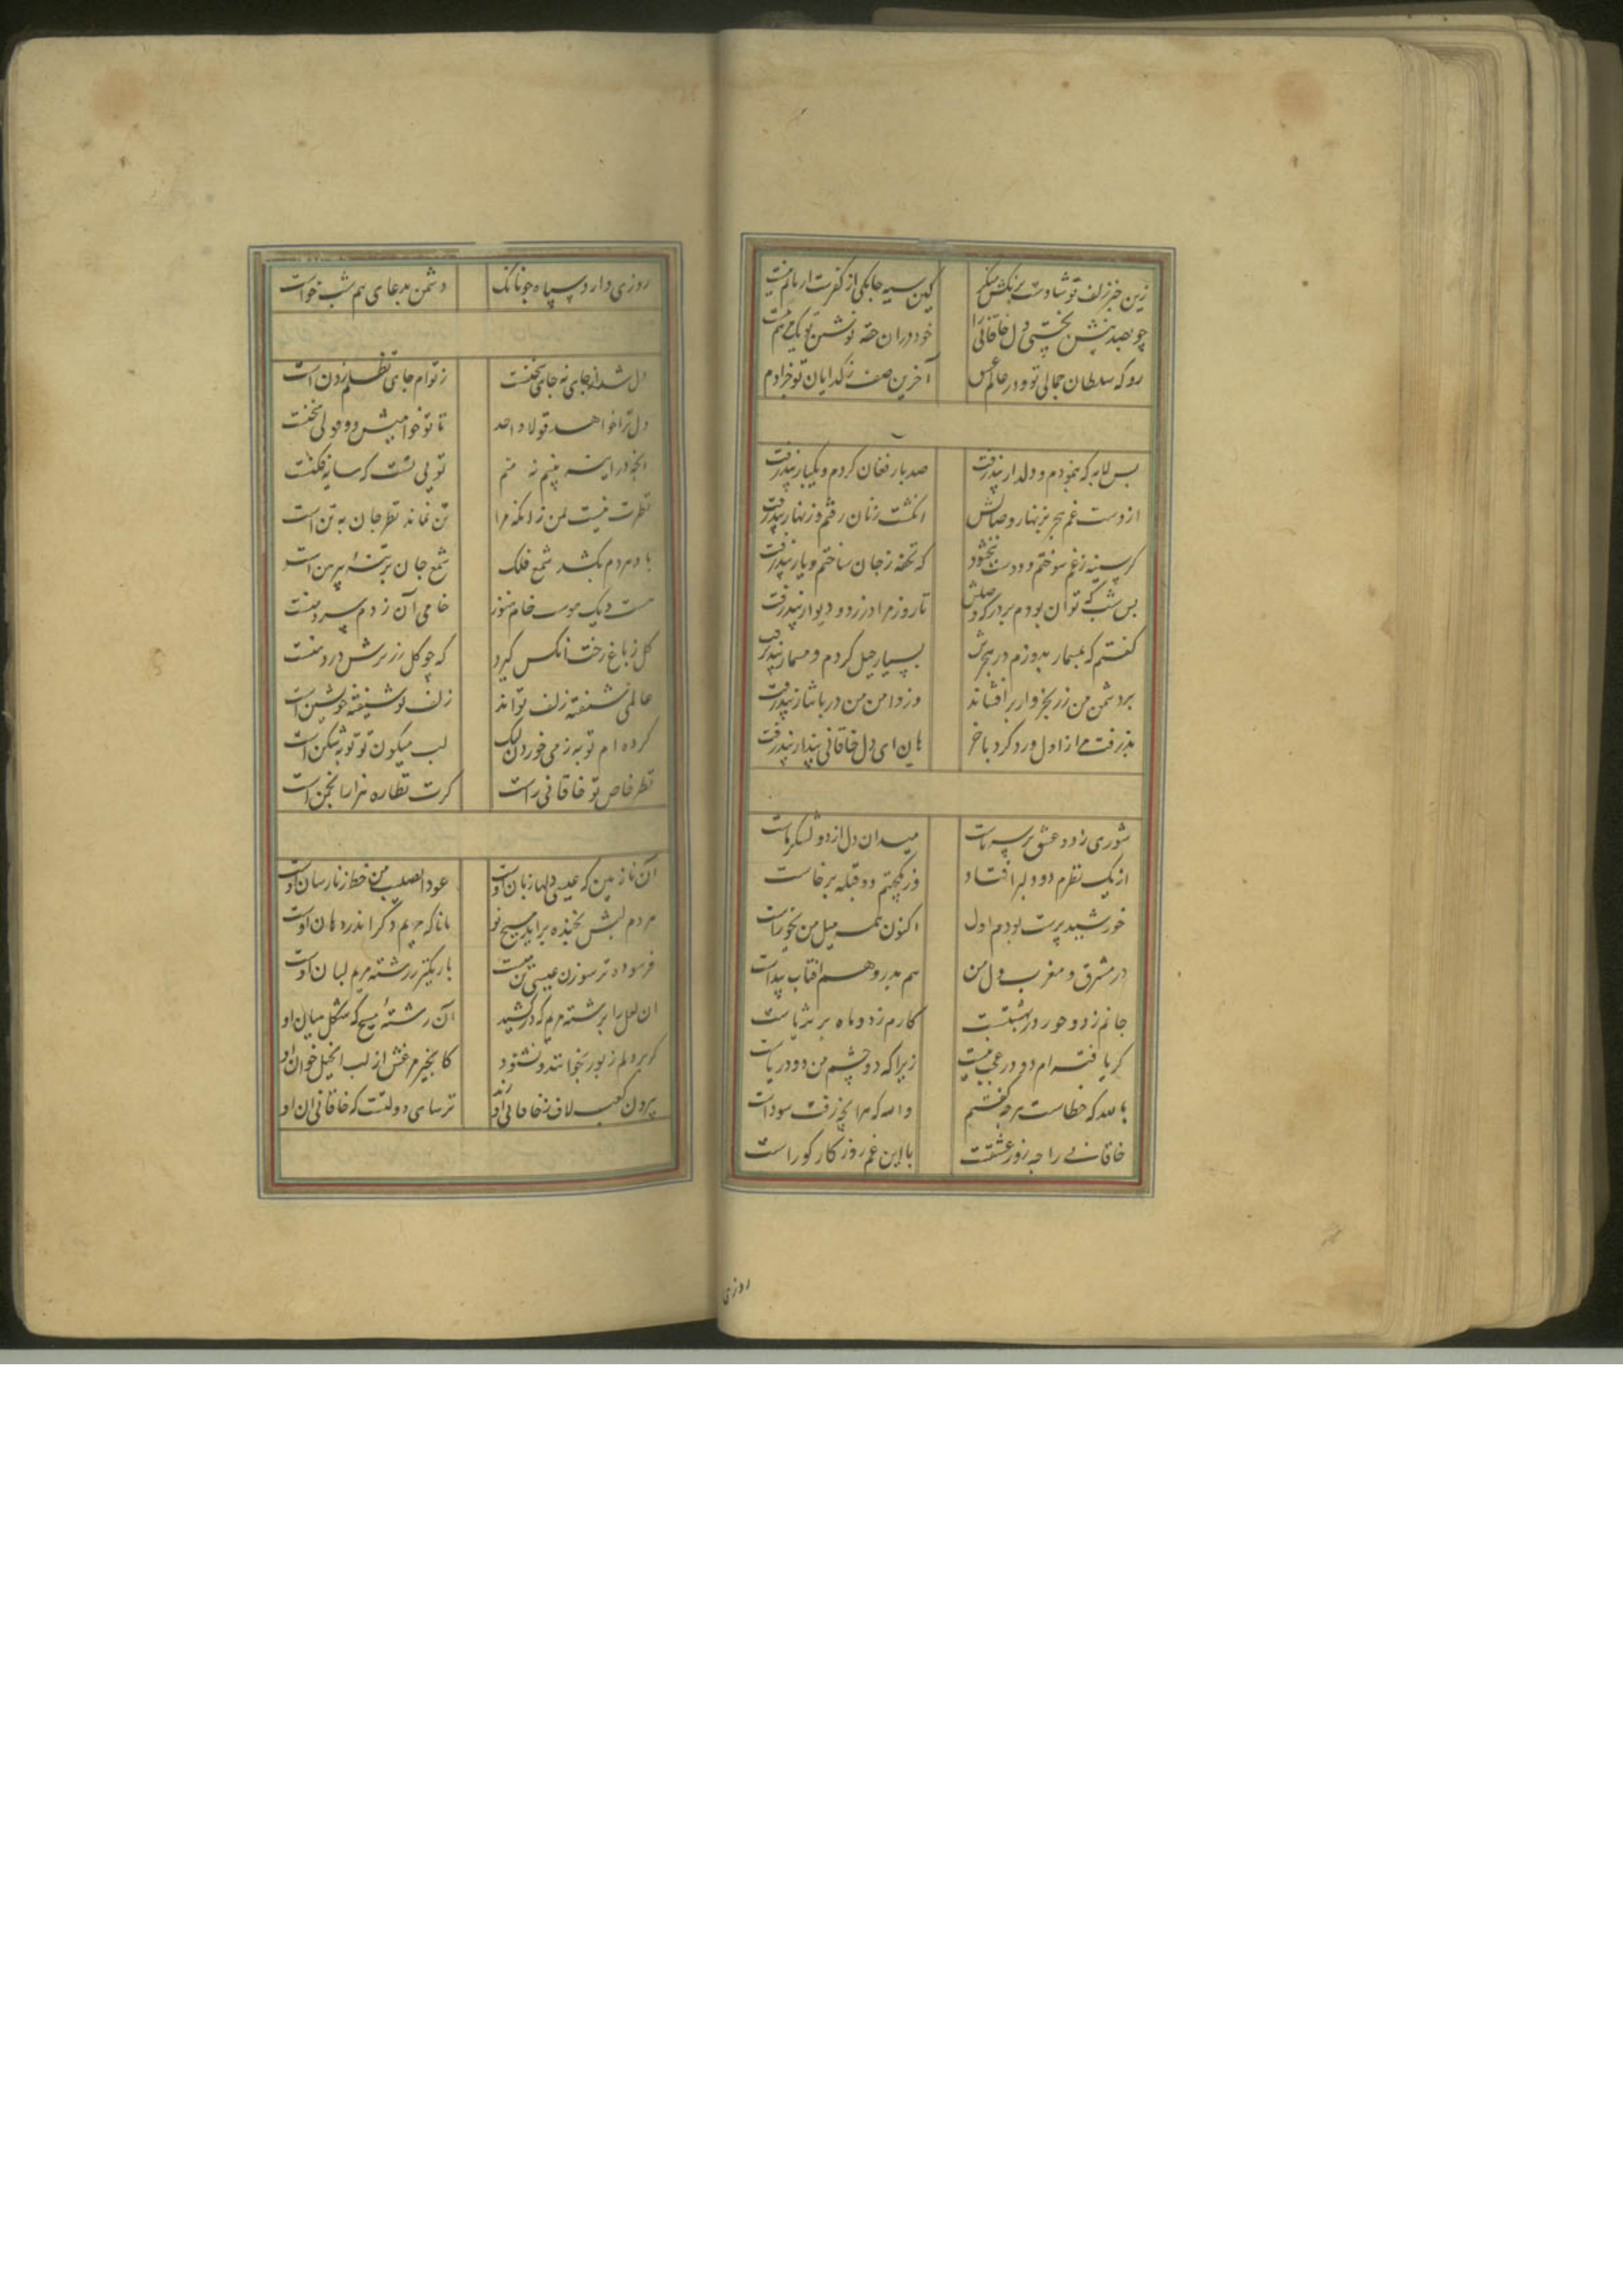 زین خبر زلف تو شادست برنکش منکر کین سیه جامکی از کفرت
چو بصد خود دران حقه نوشین تو
رو که سلطان جمالی تو و در عالم عشق آخرین صف ز کدایان تو خرادم
بس لابه که بنمودم و دلدار نپذرفت صد بار فغان کردم و یکبار نپذرفت
از دست غم هجر بزنهار وصالش انکشت زنان رفتم و زنهار نپذرفت
کر سینه ز غم سوختم و دوست نبخشود که تحفه ز جان ساختم و یار نپذرفت
بس شب که توان بودم بر درکه وصلش تا روز مرا در زد و دیوار نپذرفت
کفتم که بمسمار بدوزم در هجرش بسیار حیل کردم و مسمار نپذرفت
بر دشمن من زر بخروار برافشاند وز دامن من در بانبار نپذرفت
بذرفت مرا ز اول و رد کرد باخر هان ای دل خاقانی بندار نپذرفت
شوری ز دو عشق بر سر ماست میدان دل از دو لشکر ماست
از یک نظرم دو دلبر افتاد وز یکجهتم دو قبله برخاست
خورشید پرست بودم اول اکنون همه میل من بجوزاست
در مشرق و مغرب دل من هم بدر و هم افتاب پیداست
جانم ز دو حور در بهشتست کارم ز دو ماه بر ثریاست
کر یافته ام دو در عجب نیست زیرا که دو چشم من دو دریاست
بالله که خطاست هرچه کفتم والله که هرانچه رفت سوداست
خاقانی را چه روز عشقت با این غم روزکار کوراست
روزی
روزی دارد سیاه چونانک دشمن بدعای هم شب خواست
دل شد از جای نه جای سخنست ز توام جای تظلم زدن است
دل ترا خواهد قولا واحد تا تو خواهیش دو قولی سخنست
انچه در اینه بینم نه منم تویی تست که سایه فکنست
نظرت نیست بمن زانکه مرا تن نماند نظر جان به تن است
باد سردم بکشد شمع فلک شمع جان بر تنه پیرهن است
هست دیک هوست خام هنوز خامی آن ز دم سرد منست
کل ز باغ رخت آنکس کیرد که چو کل زر ترش در دهنست
عالمی شیفته زلف تواند زلف تو شیفته خویشتن است
کرده ام توبه ز می خوردن لیک لب میکون تو توبه شکن است
نظر خاص تو خاقانی راست کرت نظاره هزار انجمن است
آن نازنین که عیسی دلها زبان اوست عود الصلیب من خط زنار سان اوست
هر دم لبش بخنده براید مسیح نو مانا که مریم دکر اندر دهان اوست
فرسوده تر ز سوزن عیسی تن منست باریکتر ز رشته مریم لبان اوست
ان لعل را برشته مریم که درکشید آن رشته مسیح که شکل میان او
کر بر دلم زبور بخوانند و نشنود کانجیر مرغش از لب انجیل خوان او
بیرون کعبه لاف ز خاقانی آن زند ترسای دولتست که خاقانی ان او